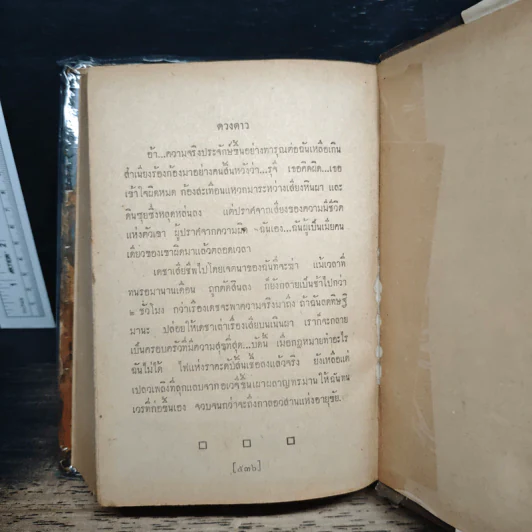 ดวงดาว
อ้า...ความจริงประจักษ์ขึ้นอย่างทารุณต่อฉันเหลือเกิน
สำเนียงร้องก้องมาอย่างคนสิ้นหวังว่า...รุจี เธอคิดผิด...เธอ
เข้าใจผิดหมด ก้องสะเทือนแหวกมาระหว่างเสียงหินผา และ
ดินซุยซึ่งหลุดหล่นลง แต่ปราศจากเสียงของความมีชีวิต
แห่งตัวเขา ผู้ปราศจากความผิด ฉันเอง...ฉันผู้เป็นเมียคน
เดียวของเขาผิดมาแล้วตลอดเวลา
เดชาเสียชีพไปโดยเจตนาของฉันที่จะฆ่า แม้เวลาที่
ทนรอมานานเดือน ถูกตัดสินลง ก็ยังกลายเป็นช้าไปกว่า
๒ ชั่วโมง กว่าเรื่องเดชจะพาความจริงมาถึง ถ้าฉันลดทิษฐิ
มานะ ปล่อยให้เดชาเล่าเรื่องเสียบนเนินผา เราก็จะกลาย
เป็นครอบครัวที่มีความสุขที่สุด...บัดนี้ เมื่อกฎหมายทำอะไร
ฉันไม่ได้ ไฟแห่งราคะดับสิ้นเชื้อลงแล้วจริง ยังเหลือแต่
เปลวเพลิงที่ลุกแลบจากอเวจีขึ้นเผาผลาญทรมาน ให้ฉันทน
เวรที่ก่อขึ้นเอง จวบจนกว่าจะถึงกาลอวสานแห่งอายุขัย.
[๕๓๖]